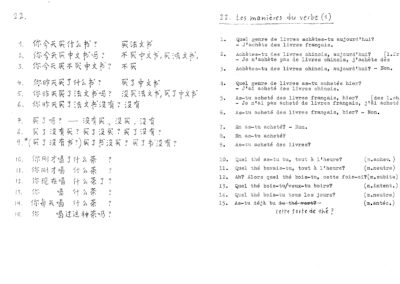 22.
1. 你今天买什么书? 买法文书
2. 你今天买中文书吗? 不买中文书,买法文书.
3. 你今天买不买中文书? 不买
4. 你昨天买了什么书? 买了中文书
5. 你昨天买了法文书吗? 没买法文书,买了中文书
6. 你昨天买了法文书没有? 没有
7. 买了吗? — 没有买, 没买, 没有
8. 买了没有?
10. 你刚才喝了什么茶?
11. 你刚才喝 什么茶?
12. 你现在喝 什么茶?
13. 你 喝 什么茶?
14. 你每天喝 什么茶?
15. 你 喝过这种茶吗?
II. Les manières du verbe (s)
1. Quel genre de livres achètes-tu aujourd'hui?
- J'achète des livres français.
2. Achètes-tu des livres chinois, aujourd'hui?
- Je n'achète pas de livres chinois, j'achète des
3. Achètes-tu des livres chinois, aujourd'hui? - Non.
4. Quel genre de livres as-tu achetés hier?
- J'ai acheté des livres chinois.
5. As-tu acheté des livres français, hier?
- Je n'ai pas acheté de livres français, j'ai acheté
6. As-tu acheté des livres français, hier? - Non.
7. En as-tu acheté? - Non.
8. En as-tu acheté?
9. As-tu acheté des livres?
10. Quel thé as-tu bu, tout à l'heure? (m.achev.)
11. Quel thé buvais-tu, tout à l'heure? (m.inact.)
12. Ah? Alors quel thé bois-tu, cette fois-ci? (m.subite)
13. Quel thé bois-tu/veux-tu boire? (m.intent.)
14. Quel thé bois-tu tous les jours? (m.neutre)
15. As-tu déjà bu de thé vert? (m.antéc.)
cette sorte de thé?